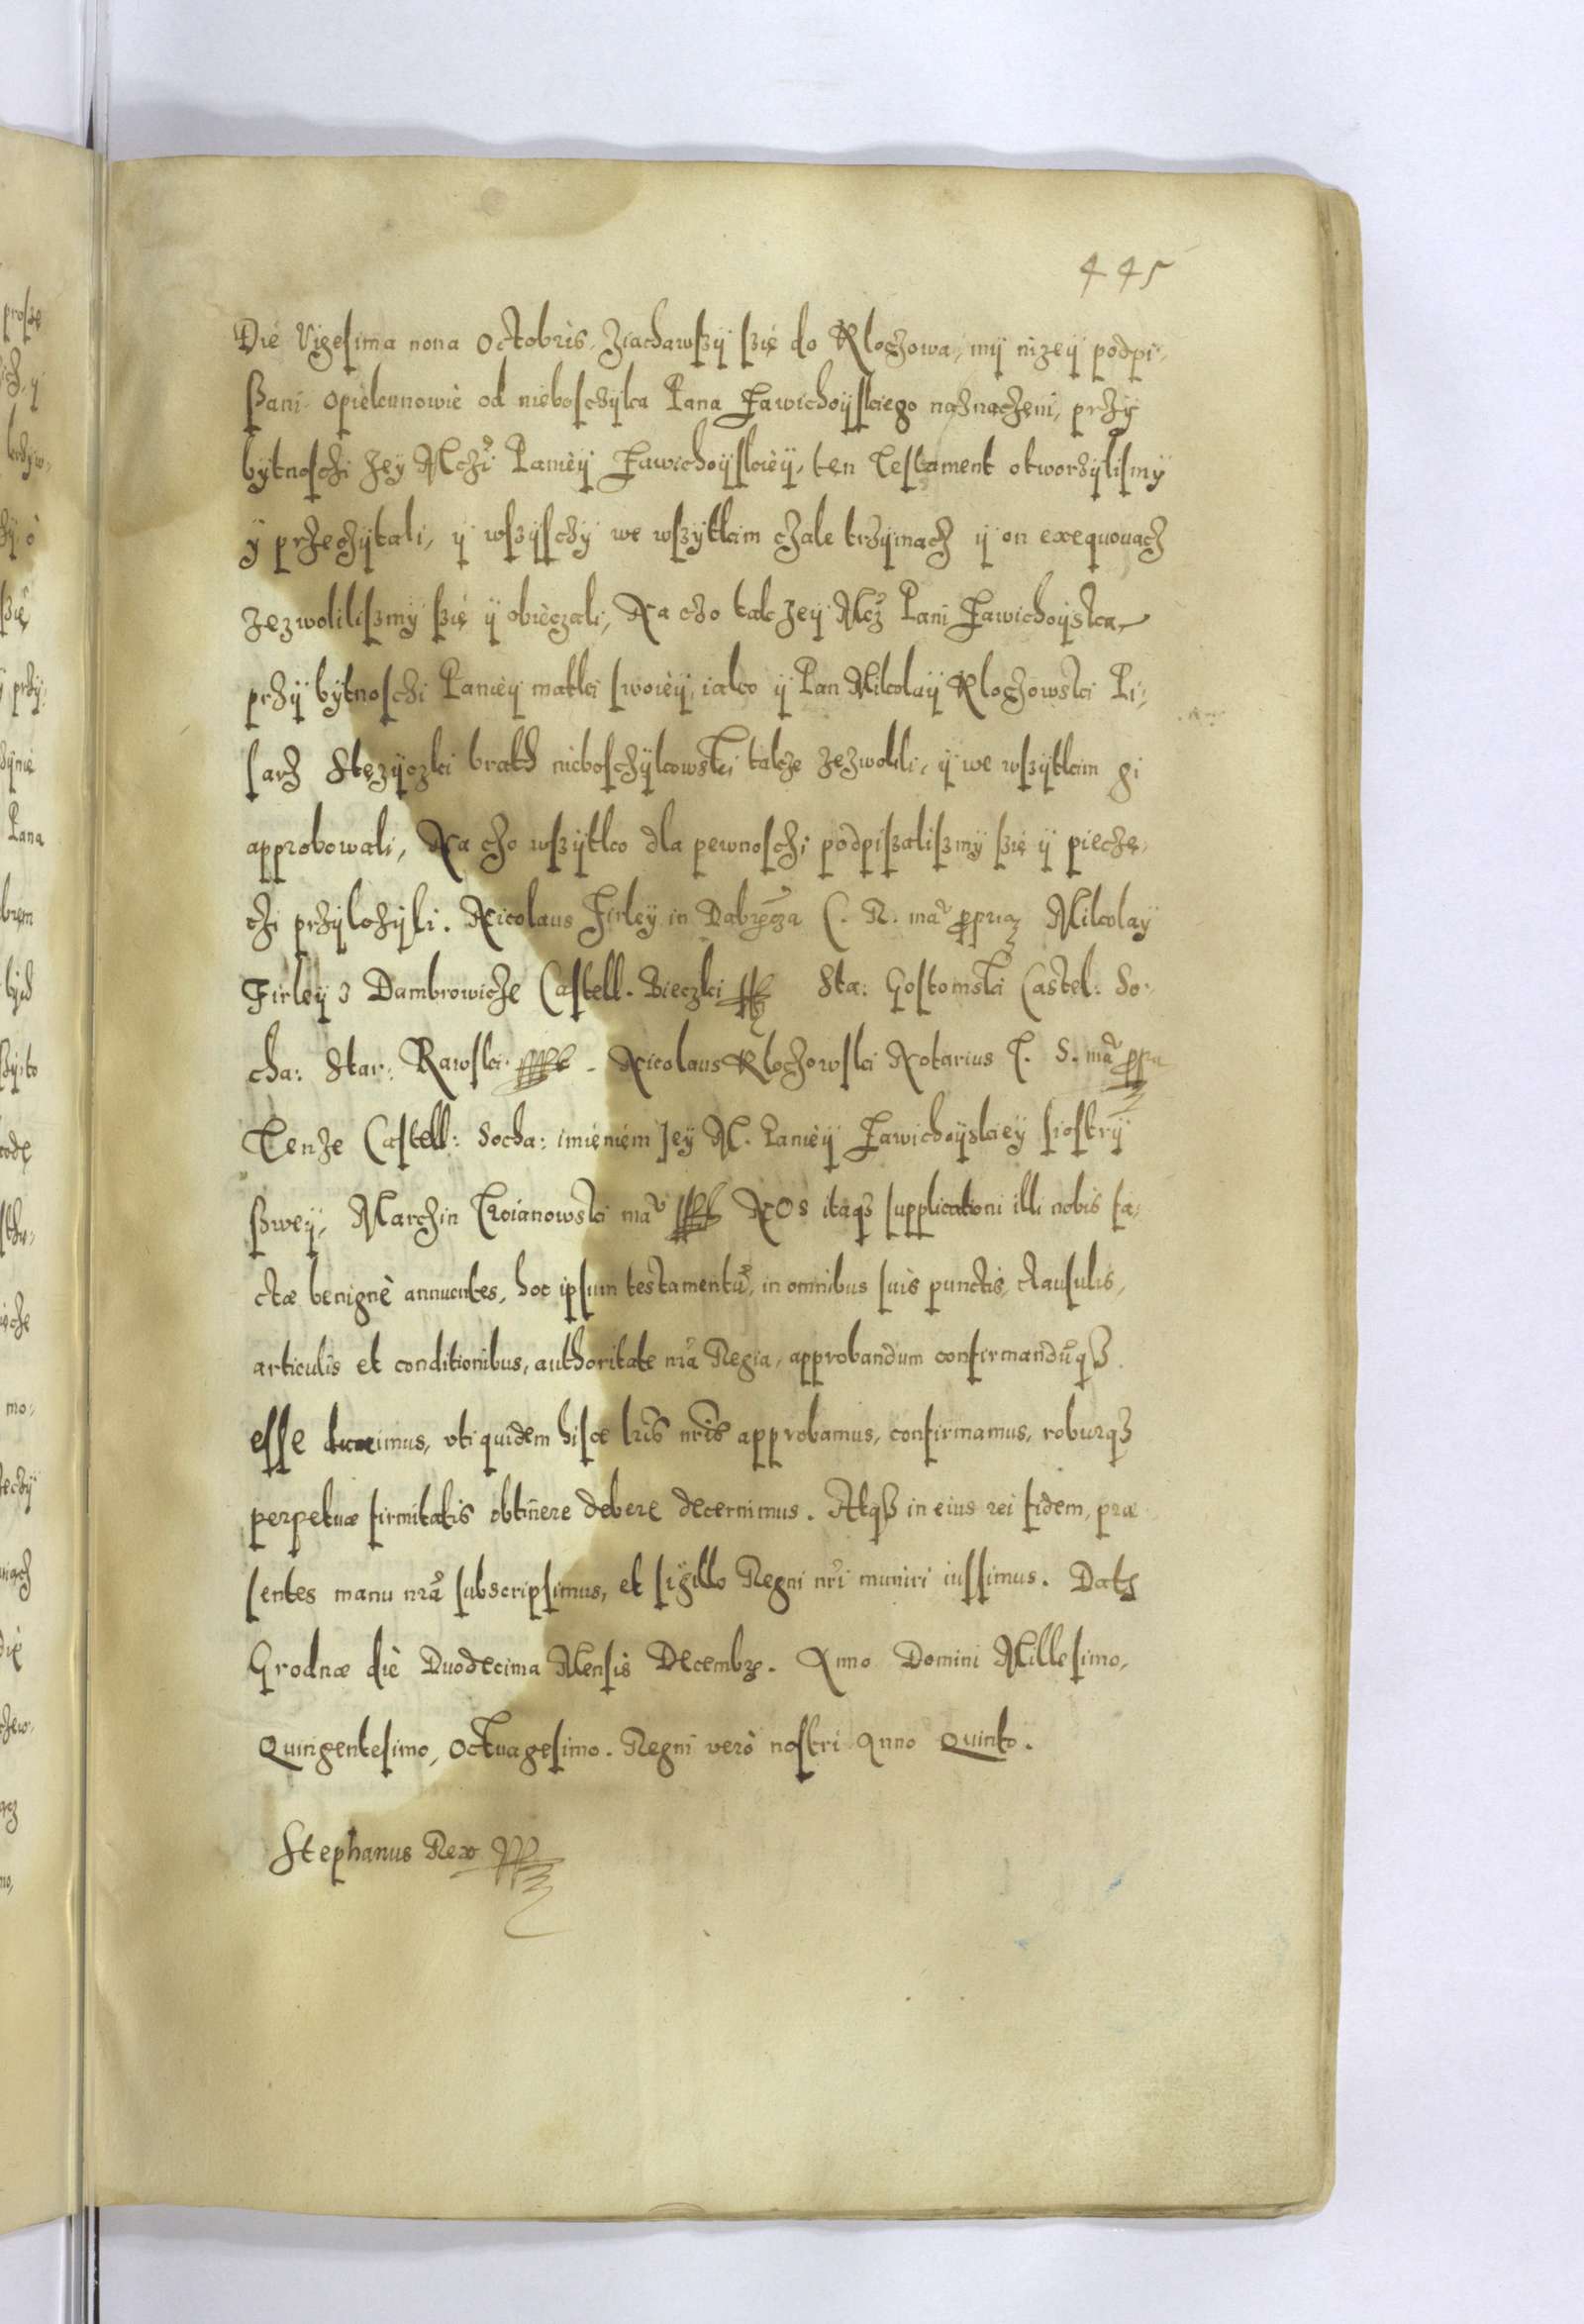 445
Die Vigesima nona Octobris. Ziachawszÿ szię do Klochowa, mÿ nizeÿ podpi-
szani opiekunowie od nieboschÿka Pana Zawichoÿskiego naznaczeni, przÿ
bÿtnoschi Jeÿ Mczi Paniéÿ Zawichoÿskiéÿ, ten Testament otworzÿlismÿ
ÿ przechÿtali, ÿ wszÿschÿ we wszÿtkim chale trzÿmach ÿ on exequowach
zezwoliliszmÿ szię ÿ obieczali, Na cżo tak Jeÿ Mcż Pani Zawichoÿska
przÿ bÿtnoschi Paniéÿ matki swoiéÿ, iako ÿ Pan Mikolaÿ Klochowski Pi-
sarz Stęzÿczki brath nieboschÿkowski takze zezwolili, ÿ we wszÿtkim gi
approbowali, Na cho wszÿtko dla pewnoschi podpiszaliszmÿ szię ÿ pieche-
chi przÿlozÿli. Nicolaus Firleÿ in Dabrocza C. R. maū ppria Mikolaÿ
Firleÿ z Dambrowicze Castell. Bieczki Sta: Gostomski Castel: So-
cha: Star: Rawski. Nicolaus Klochowski Notarius T. S. maū ppa
Tenze Castell: Socha: imieniem Jeÿ M. Paniéÿ Zawichoÿskieÿ siostrÿ
szweÿ, Marchin Troianowski maū NOs itaq3 supplicationi illi nobis fa-
ctæ benignè annuentes, hoc ipsum testamentū, in omnibus suis punctis, clausulis,
articulis et conditionibus, authoritate nrā Regia, approbandum confirmandūq3
esse duximus, vti quidem hisce lris nris approbamus, confirmamus, roburq3
perpetuæ firmitatis obtinere debere decernimus. Atq3 in eius rei fidem, præ-
sentes manu nrā subscripsimus, et sigillo Regni nri muniri iussimus. Dat
Grodnæ die Duodecima Mensis Decembr. Anno Domini Millesimo,
Quingentesimo, Octuagesimo. Regni verò nostri Anno Quinto.
Stephanus Rex